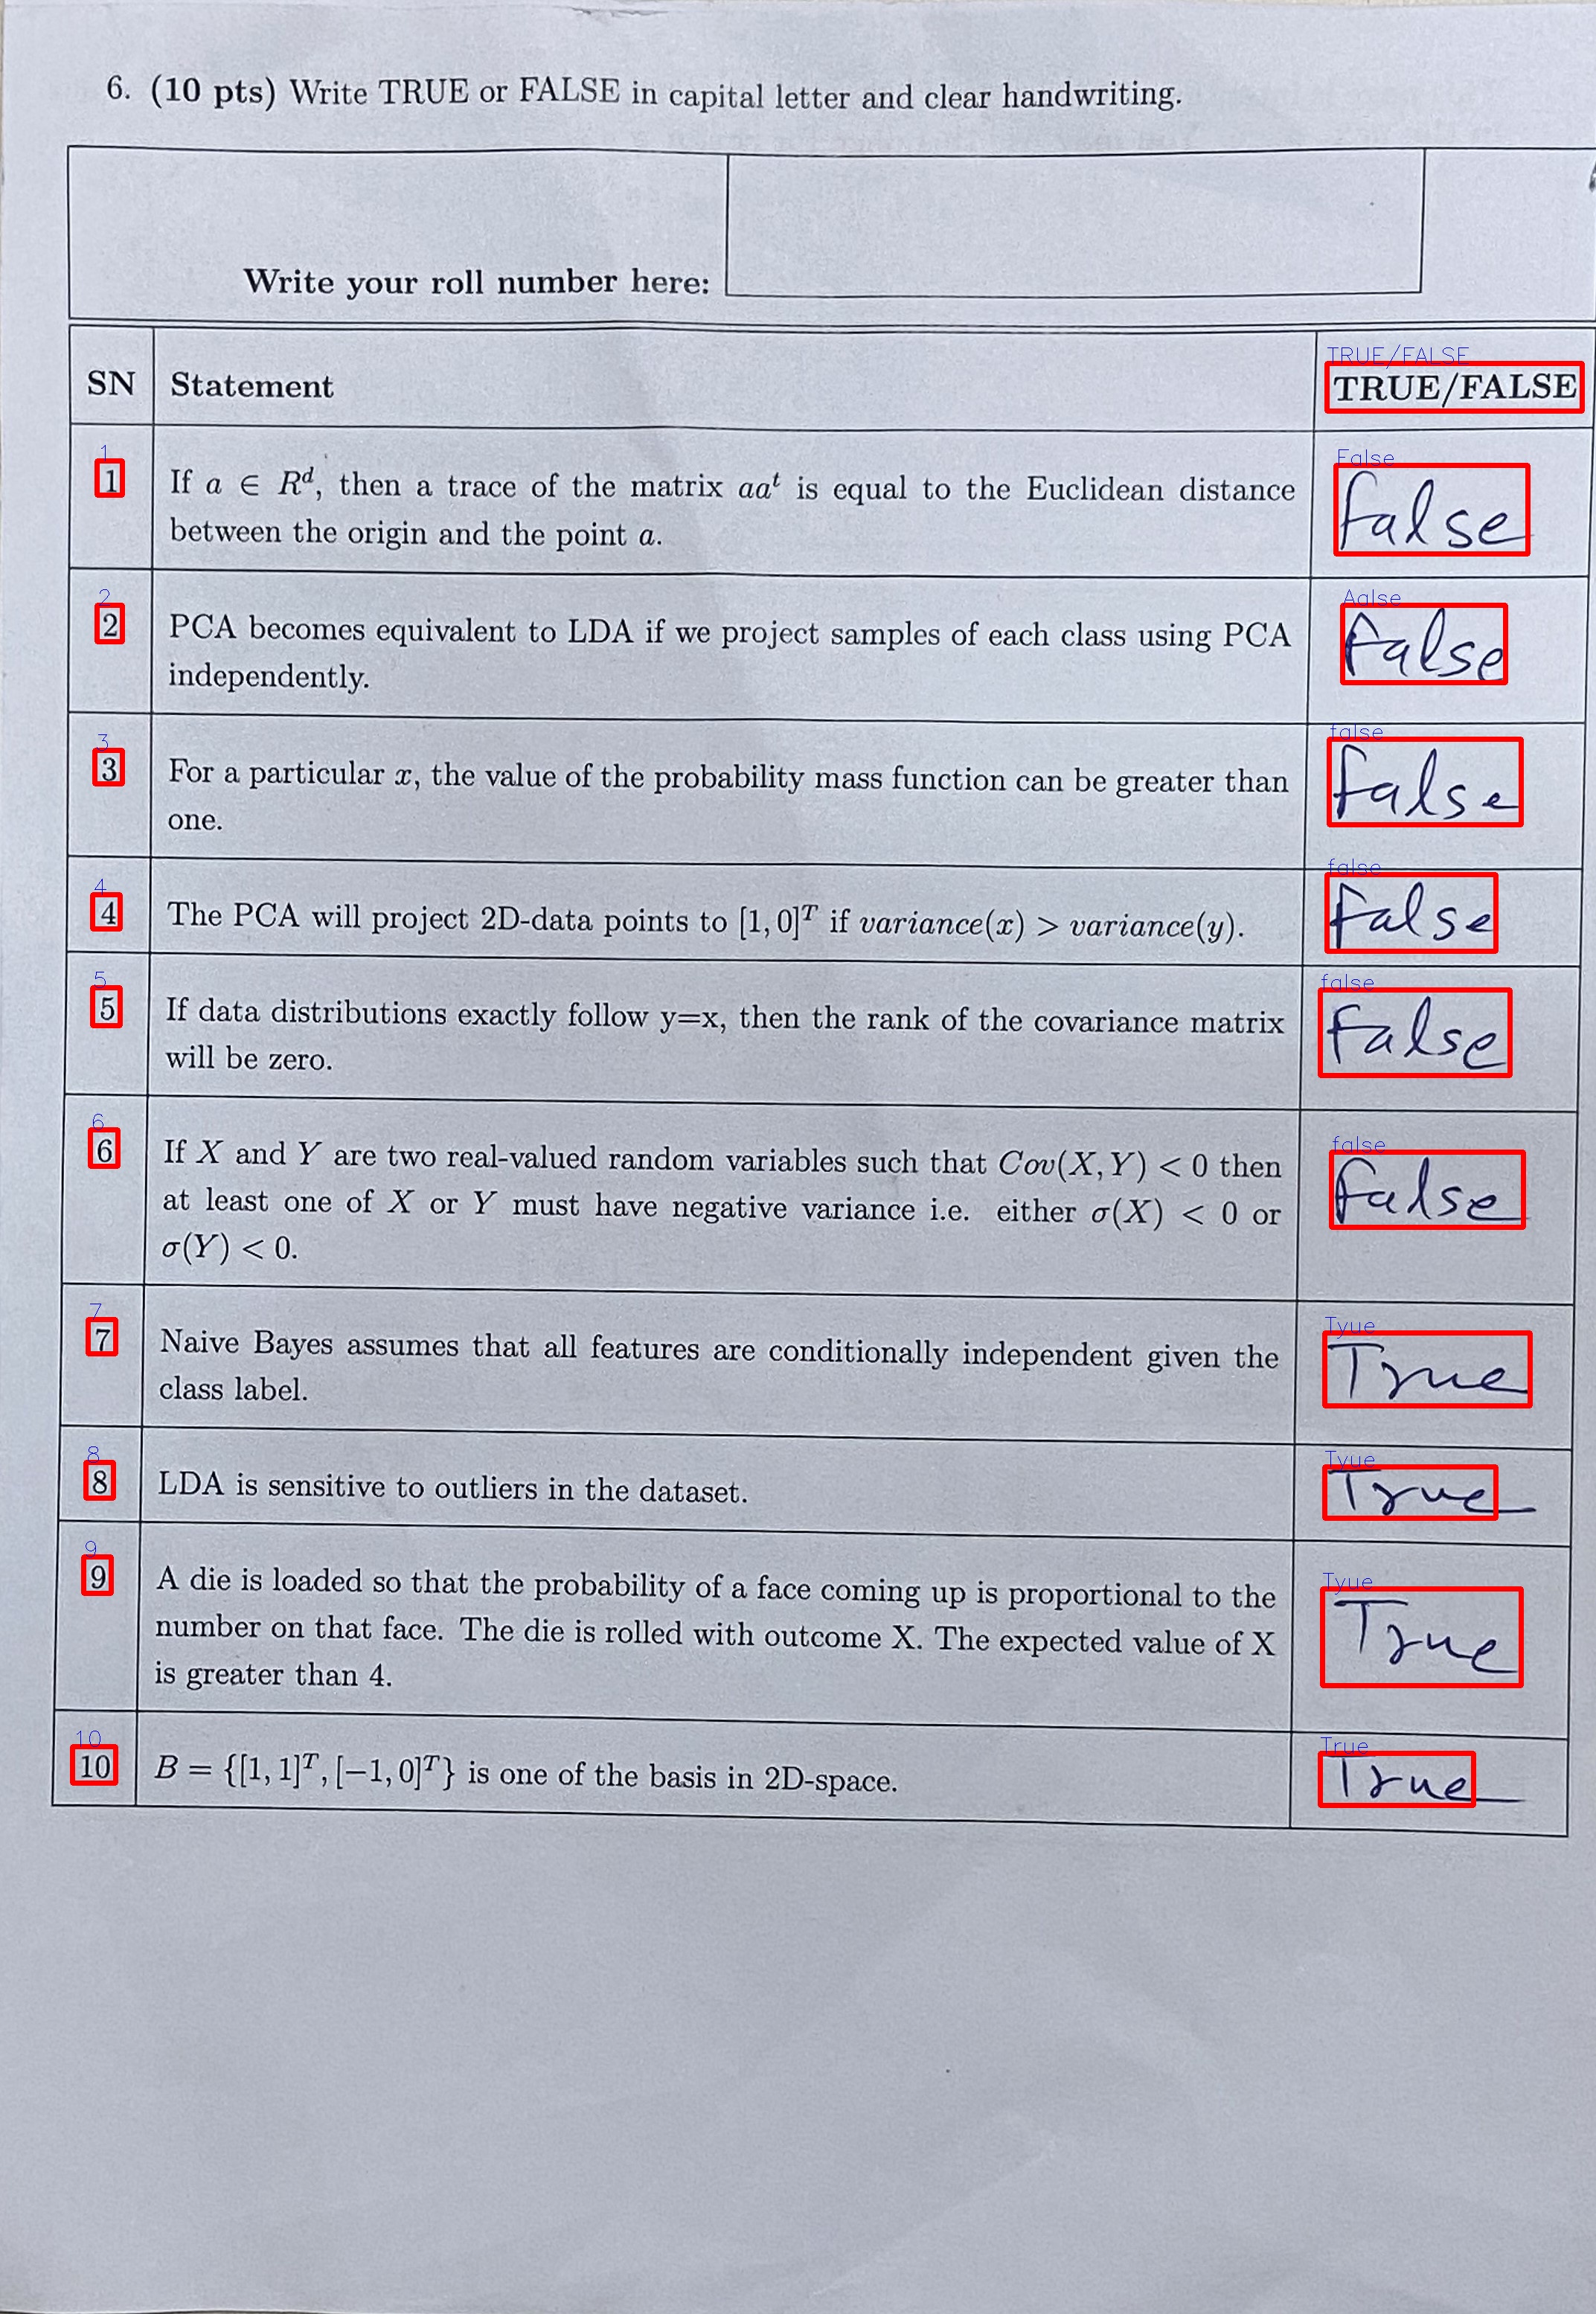 6. (10 pts) Write TRUE or FALSE in capital letter and clear handwriting.
Write your roll number here:
TRUE/FALSE
SN Statement TRUE/FALSE
1
False
1 If a ∈ R^d, then a trace of the matrix aa^t is equal to the Euclidean distance
between the origin and the point a.
False
2
Aalse
2 PCA becomes equivalent to LDA if we project samples of each class using PCA
independently.
False
3
false
3 For a particular x, the value of the probability mass function can be greater than
one.
False
4
false
4 The PCA will project 2D-data points to [1, 0]^T if variance(x) > variance(y).
False
5
false
5 If data distributions exactly follow y=x, then the rank of the covariance matrix
will be zero.
False
6
false
6 If X and Y are two real-valued random variables such that Cov(X, Y) < 0 then
at least one of X or Y must have negative variance i.e. either σ(X) < 0 or
σ(Y) < 0.
False
7
Tyue
7 Naive Bayes assumes that all features are conditionally independent given the
class label.
True
8
Tyue
8 LDA is sensitive to outliers in the dataset.
True
9
Tyue
9 A die is loaded so that the probability of a face coming up is proportional to the
number on that face. The die is rolled with outcome X. The expected value of X
is greater than 4.
True
10
True
10 B = {[1, 1]^T, [−1, 0]^T} is one of the basis in 2D-space.
True